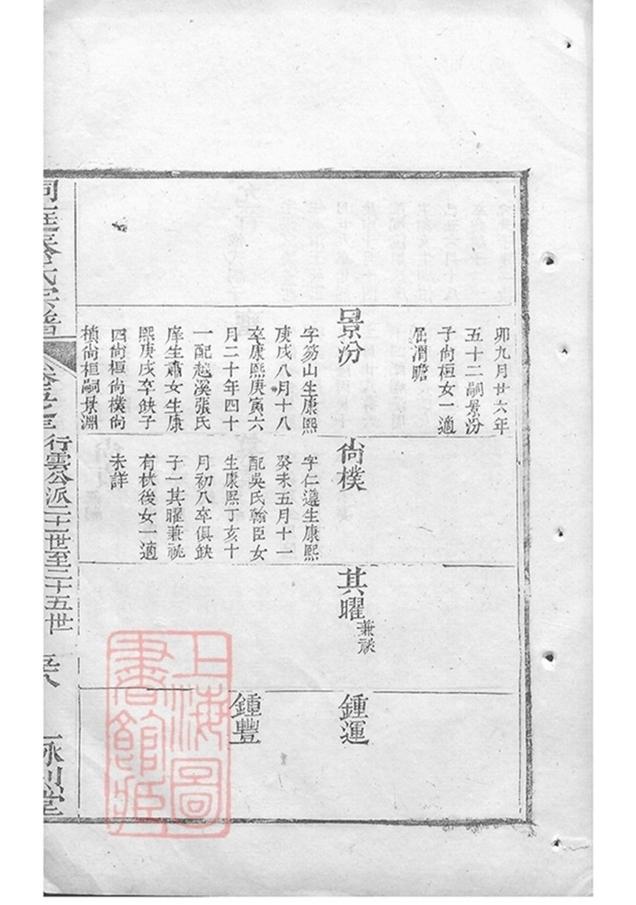 卯九月廿六年
五十二嗣景汾
子尙桓女一適
屈渭瞻
景汾
字芴山生康熙
庚戌八月十八
卒康熙庚寅六
月二十年四十
一配越溪張氏
庠生肅女生康
熙庚戌卒缺子
四尙桓尙樸尙
楨尙桓嗣景淵
尙樸
字仁遵生康熙
癸未五月十一
配吳氏翰臣女
生康熙丁亥十
月初八卒俱缺
子一其曜兼祧
有林後女一適
未詳
其曜兼祧
鍾運
鍾豐
洞庭秦氏宗譜
行雲公派二十一世至二十五世
詠烈堂
上海圖書館藏